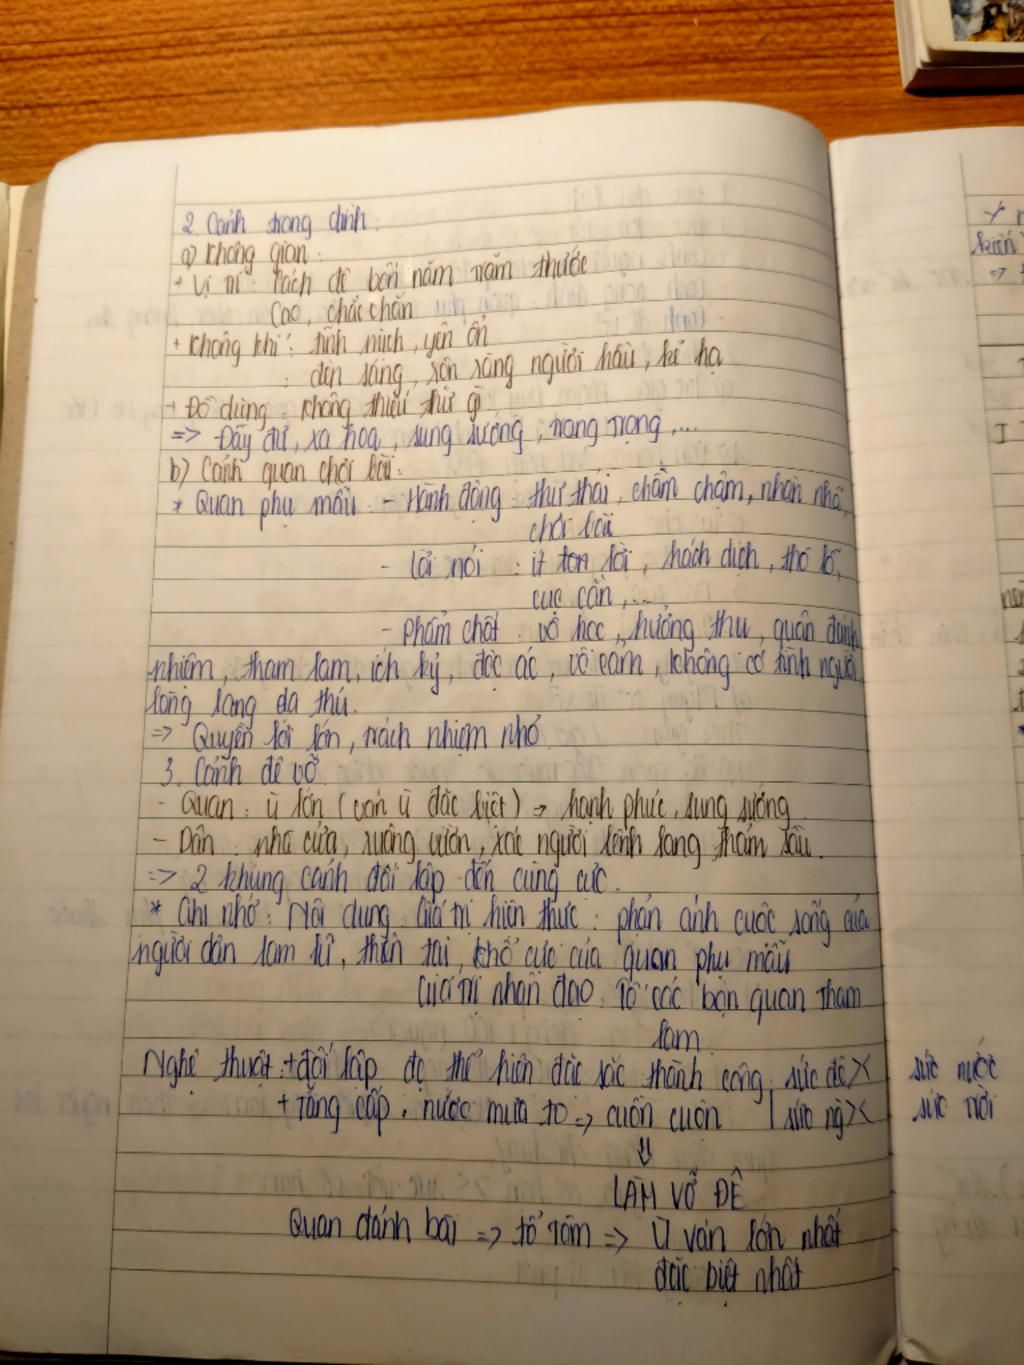 2. Cảnh trong đình:
a) Không gian:
+ Vị trí: Cách đê bốn năm trăm thước
Cao, chắc chắn
+ Không khí: tĩnh mịch, yên ổn
: đèn sáng, sẵn sàng người hầu, kẻ hạ
+ Đồ dùng: Không thiếu thứ gì
=> Đầy đủ, xa hoa, sung sướng, trang trọng,...
b) Cảnh quan chơi bài:
* Quan phụ mẫu - Hành động: thư thái, chầm chậm, nhàn nhã,
chơi bài
- Lời nói : ít lời, hách dịch, thô lỗ,
cục cằn,...
- Phẩm chất: vô học, hưởng thụ, quên
nhiệm, tham lam, ích kỷ, độc ác, vô cảm, không có tình người
lòng lang dạ thú.
=> Quyền lợi lớn, trách nhiệm nhỏ.
3. Cảnh đê vỡ
- Quan: ù lớn (ván ù đặc biệt) => hạnh phúc, sung sướng.
- Dân: nhà cửa, ruộng vườn, xác người lênh láng thảm sầu.
=> 2 khung cảnh đối lập đến cùng cực.
* Ghi nhớ: Nội dung: Giá trị hiện thực: phản ánh cuộc sống của
người dân lam lũ, thiên tai, khổ cực của quan phụ mẫu
Giá trị nhân đạo: Tố các bọn quan tham
lam
Nghệ thuật: + đối lập đc thể hiện đặc sắc thành công: sức đê >< sức nước
+ Tăng cấp: nước mưa to => cuồn cuộn | sức ng >< sức trời
⇓
LÀM VỠ ĐÊ
Quan đánh bài => tổ tôm => Ù ván lớn nhất
đặc biệt nhất
kiến
=>
I